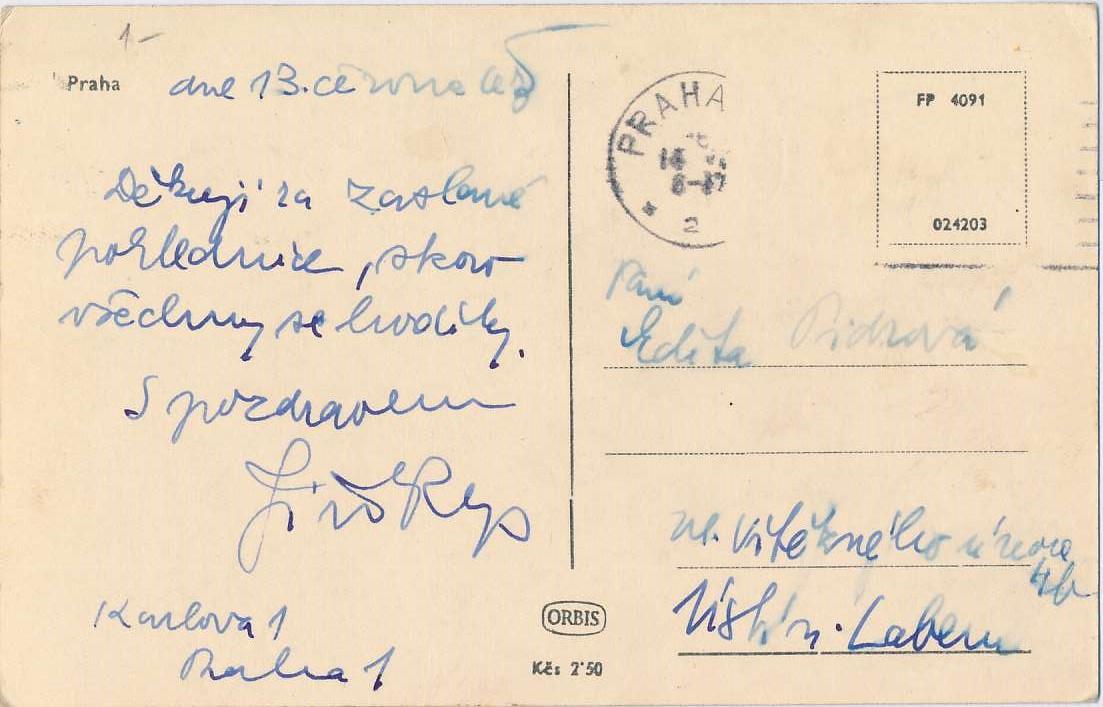 1-
Praha dne 13. června
Děkuji za zaslané
pohlednice, skoro
všechny se hodily.
S pozdravem
Jiří
Karlova 1
Praha 1
PRAHA
2
FP 4091
024203
Paní
Edita
ul. Vítězného února
Ústí n. Labem
ORBIS
Kčs 2'50